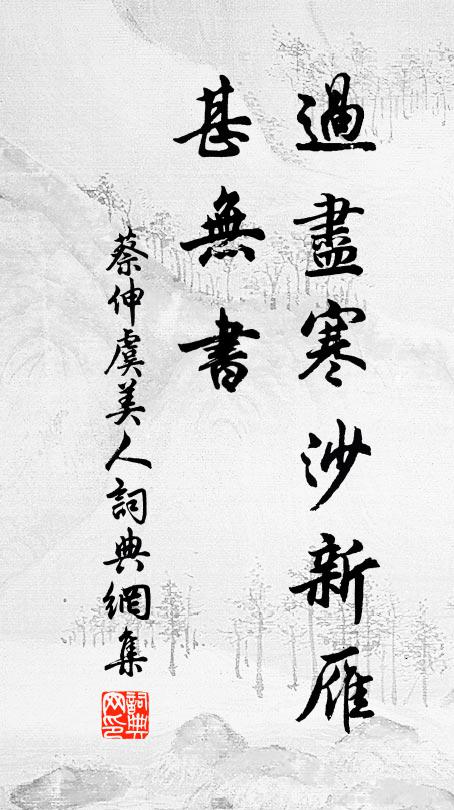 過盡寒沙新雁
甚無書
蔡伸虞美人詞典網集
詞典网印